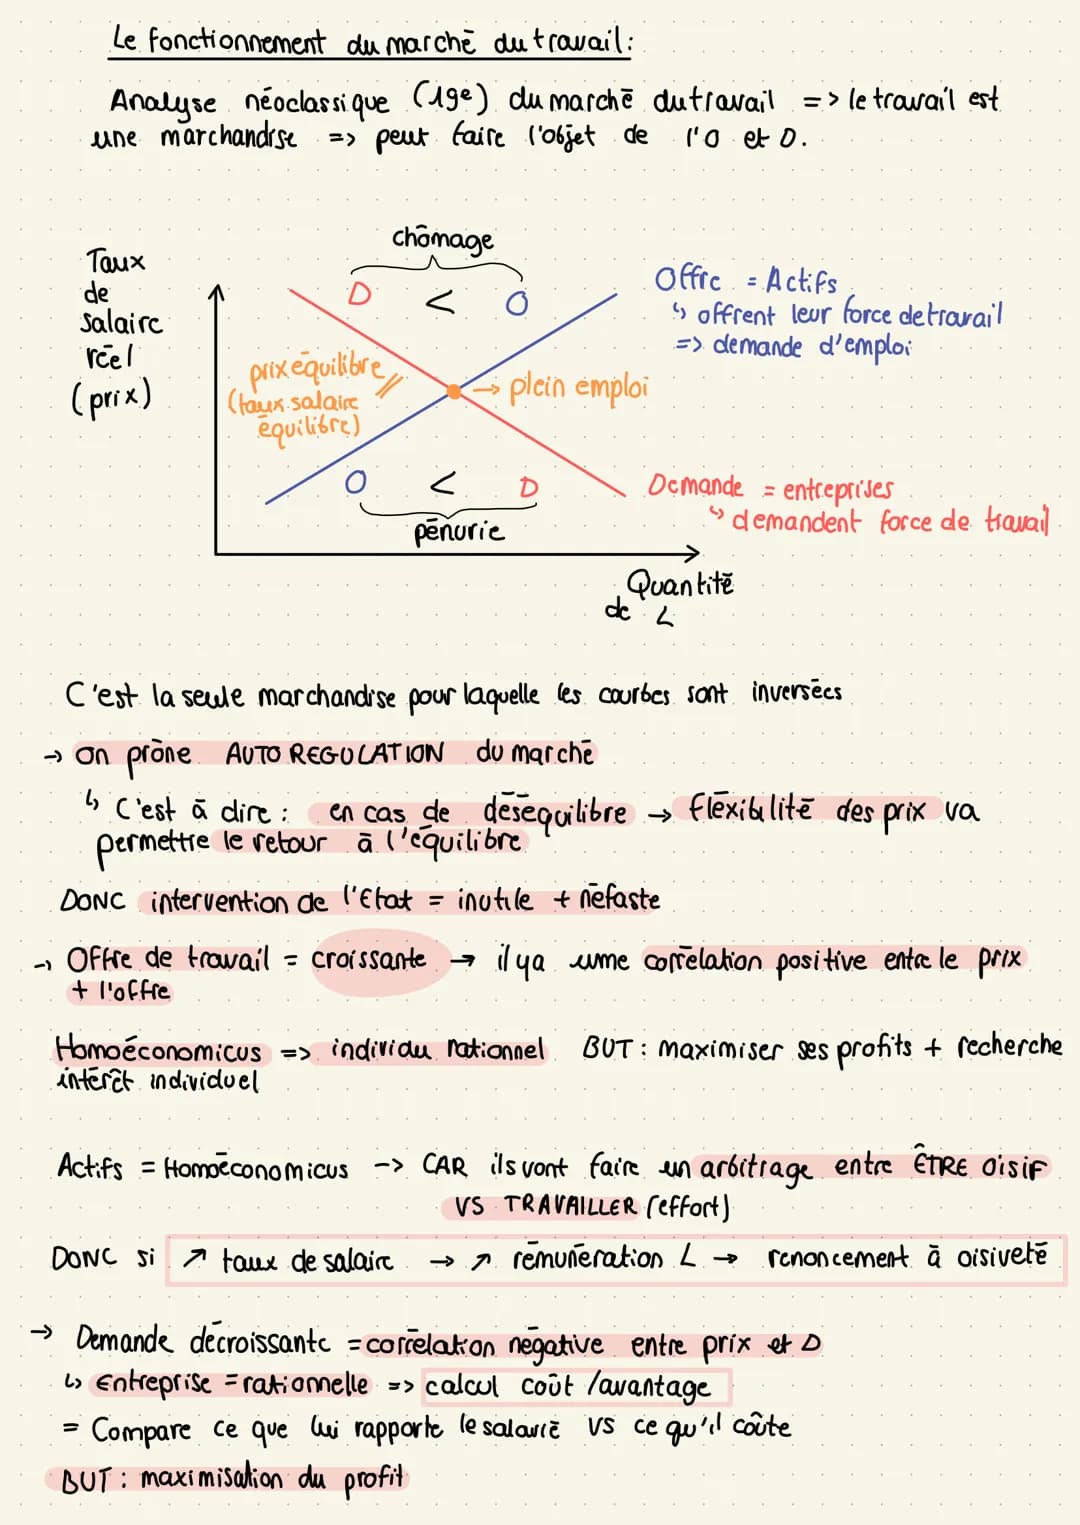 Le fonctionnement du marché du travail:
Analyse néoclassique (19e) du marché du travail => le travail est
une marchandise => peut faire l'objet de l'O et D.
chômage
Taux
de
salaire
réel
(prix)
D < O
Offre = Actifs
↳ offrent leur force de travail
=> demande d'emploi
prix équilibre
(taux salaire
équilibre)
→ plein emploi
O < D
pénurie
Demande = entreprises
↳ demandent force de travail
Quantité
de L
C'est la seule marchandise pour laquelle les courbes sont inversées
→ on prône AUTO REGULATION du marché
↳ C'est à dire : en cas de déséquilibre → flexibilité des prix va
permettre le retour à l'équilibre
DONC intervention de l'Etat = inutile + néfaste
→ Offre de travail = croissante → il y a une corrélation positive entre le prix
+ l'offre
Homoéconomicus => individu rationnel BUT : maximiser ses profits + recherche
intérêt individuel
Actifs = Homoéconomicus -> CAR ils vont faire un arbitrage entre ÊTRE oisif
VS TRAVAILLER (effort)
DONC si ↗ taux de salaire → ↗ rémunération L → renoncement à oisiveté
→ Demande décroissante = corrélation négative entre prix et D
↳ Entreprise = rationnelle => calcul coût /avantage
= Compare ce que lui rapporte le salarié VS ce qu'il coûte
BUT : maximisation du profit